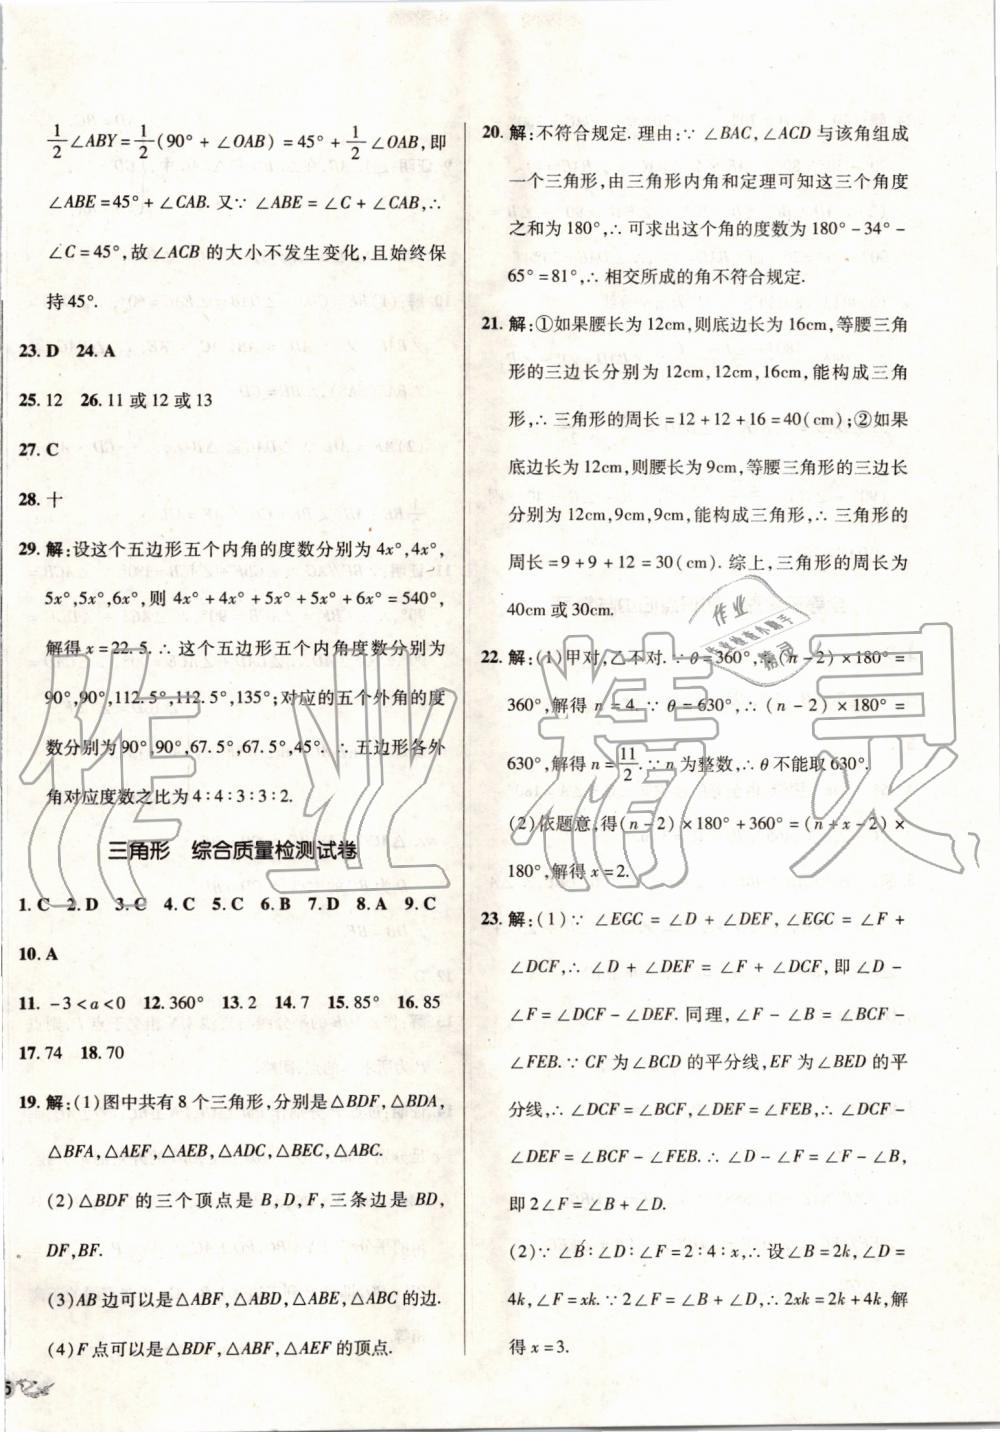 1/2∠ABY=1/2(90°+∠OAB)=45°+1/2∠OAB,即
∠ABE=45°+∠CAB. 又∵∠ABE=∠C+∠CAB,∴
∠C=45°,故∠ACB 的大小不发生变化,且始终保
持 45°.
23. D 24. A
25. 12 26. 11 或 12 或 13
27. C
28. 十
29. 解:设这个五边形五个内角的度数分别为 4x°,4x°,
5x°,5x°,6x°,则 4x+4x+5x+5x+6x=540°,
解得 x=22.5. ∴ 这个五边形五个内角度数分别为
90°,90°,112.5°,112.5°,135°;对应的五个外角的度
数分别为 90°,90°,67.5°,67.5°,45°. ∴ 五边形各外
角对应度数之比为 4∶4∶3∶3∶2.
三角形 综合质量检测试卷
1. C 2. D 3. C 4. C 5. C 6. B 7. D 8. A 9. C
10. A
11. -3<a<0 12. 360° 13. 2 14. 7 15. 85° 16. 85
17. 74 18. 70
19. 解:(1)图中共有 8 个三角形,分别是△BDF,△BDA,
△BFA,△AEF,△AEB,△ADC,△BEC,△ABC.
(2)△BDF 的三个顶点是 B,D,F,三条边是 BD,
DF,BF.
(3)AB 边可以是△ABF,△ABD,△ABE,△ABC 的边.
(4)F 点可以是△BDF,△ABF,△AEF 的顶点.
20. 解:不符合规定. 理由:∵∠BAC,∠ACD 与该角组成
一个三角形,由三角形内角和定理可知这三个角度
之和为 180°,∴ 可求出这个角的度数为 180°-34°-
65°=81°,∴ 相交所成的角不符合规定.
21. 解:①如果腰长为 12cm,则底边长为 16cm,等腰三角
形的三边长分别为 12cm,12cm,16cm,能构成三角
形,∴ 三角形的周长=12+12+16=40(cm);②如果
底边长为 12cm,则腰长为 9cm,等腰三角形的三边长
分别为 12cm,9cm,9cm,能构成三角形,∴ 三角形的
周长=9+9+12=30(cm). 综上,三角形的周长为
40cm 或 30cm.
22. 解:(1)甲对,乙不对. ∵θ=360°,∴(n-2)×180°=
360°,解得 n=4. ∵θ=630°,∴(n-2)×180°=
630°,解得 n=11/2. ∵n 为整数,∴θ 不能取 630°.
(2)依题意,得(n-2)×180°+360°=(n+x-2)×
180°,解得 x=2.
23. 解:(1)∵∠EGC=∠D+∠DEF,∠EGC=∠F+
∠DCF,∴∠D+∠DEF=∠F+∠DCF,即∠D-
∠F=∠DCF-∠DEF. 同理,∠F-∠B=∠BCF-
∠FEB. ∵CF 为∠BCD 的平分线,EF 为∠BED 的平
分线,∴∠DCF=∠BCF,∠DEF=∠FEB,∴∠DCF-
∠DEF=∠BCF-∠FEB. ∴∠D-∠F=∠F-∠B,
即 2∠F=∠B+∠D.
(2)∵∠B∶∠D∶∠F=2∶4∶x,∴ 设∠B=2k,∠D=
4k,∠F=xk. ∵2∠F=∠B+∠D,∴2xk=2k+4k,解
得 x=3.
作业精灵
作业
作业检查小助手
精灵